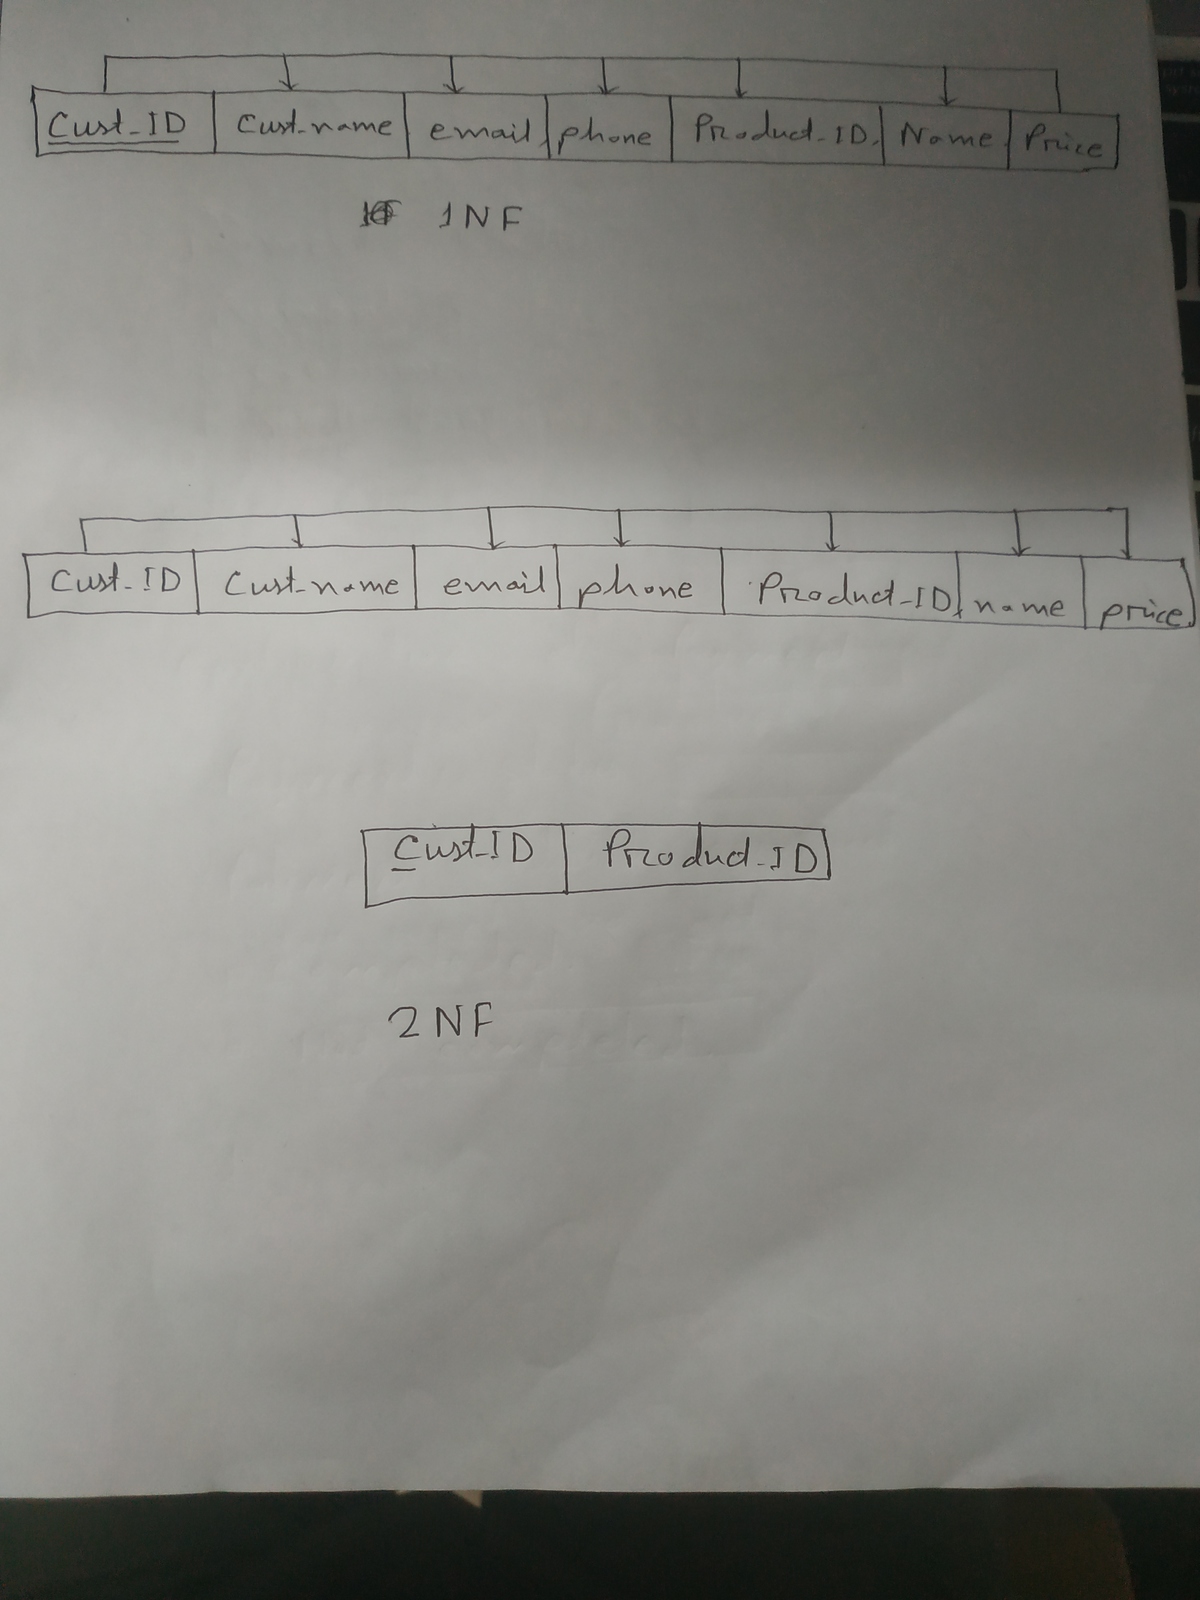 Cust_ID Cust_name email phone Product_ID Name Price
1NF
Cust_ID Cust_name email phone Product_ID name price
Cust_ID Product_ID
2NF